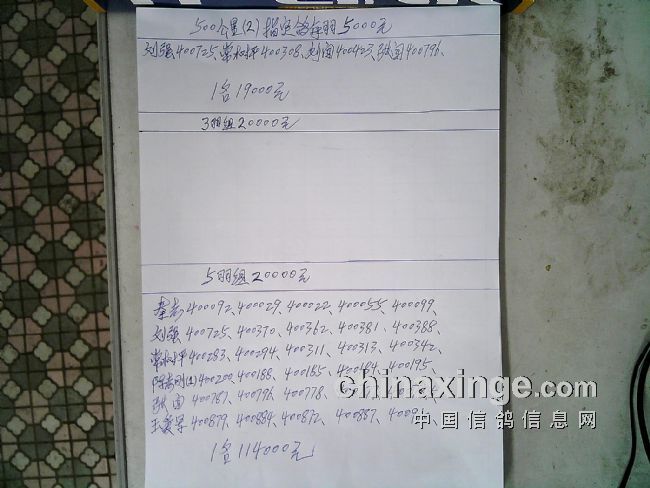 500公里(2)指定鸽每羽5000元
刘强400725、常树平400308、刘闯400423、张闯400796、
1名19000元
3羽组20000元
5羽组20000元
秦志400092、400029、400022、400055、400099、
刘强400725、400370、400362、400381、400388、
常树平400283、400294、400311、400313、400342、
400200、400188、400185、400184、400195
张闯400787、400796、400778、
400879、400884、400872、400887、
1名114000元
chinaxinge.com
中国信鸽信息网